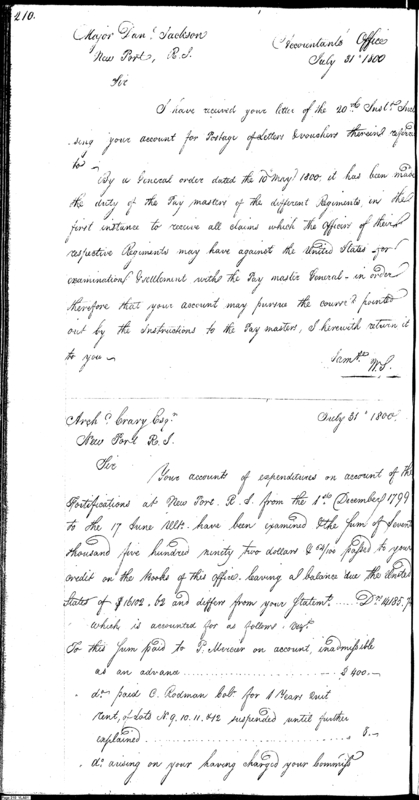 210.
Major Danl. Jackson
New Port, R.I.
Accountants Office
July 31st 1800
Sir
I have received your letter of the 20th Inst. Inclo
sing your account for Postage of Letters & vouchers therein referred
to
By a General order dated the 10 May 1800. it has been made
the duty of the Pay masters of the different Regiments, in the
first instance to receive all claims which the Officers of their
respective Regiments may have against the United States for
examination & settlement with the Pay master General - in order
therefore that your account may pursue the course pointed
out by the Instructions to the Pay masters, I herewith return it
to you
I am &c
W.S.
Archd. Crary Esqr.
New Port R.I.
July 31st 1800.
Sir
Your accounts of expenditures on account of the
Fortifications at New Port. R.I. from the 1st December 1799
to the 17 June Ult. have been examined & the sum of Seven
thousand five hundred ninety two dollars & 64/100 passed to your
credit on the Books of this office leaving a balance due the United
States of $ 16102.62 and differs from your Statemt.
which is accounted for as follows. Vizt.
To this sum paid to P. Mercer on account, inadmissible
as an advance $ 400.-
do. paid C. Rodman Colr. for 1 Years Quit
rent, of Lots No. 9. 10. 11. & 12 suspended until further
explained 8.-
do. arising on your having charged your Commiss